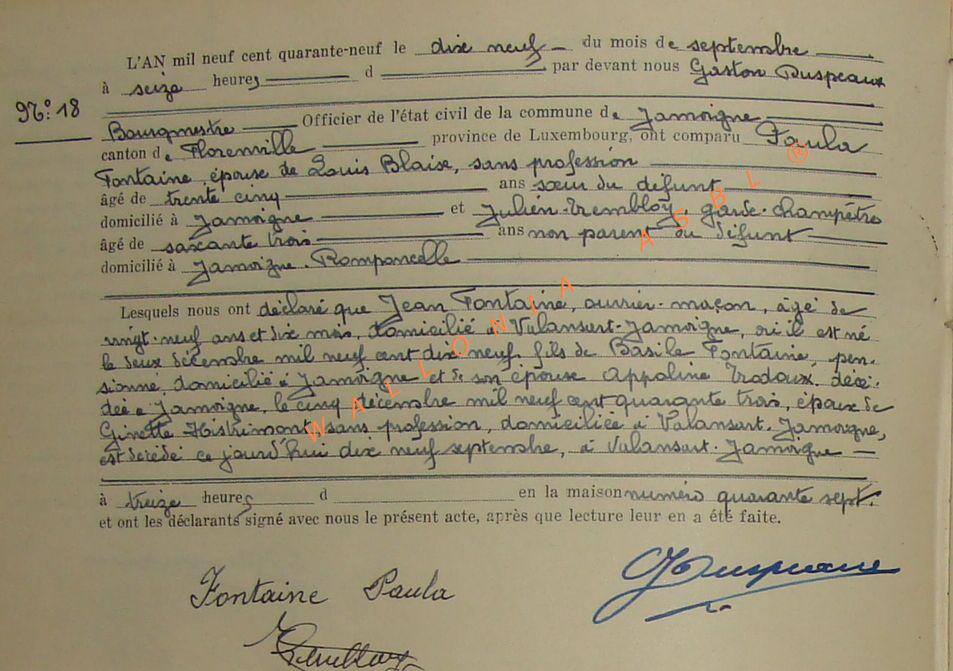 L'AN mil neuf cent quarante-neuf le dix neuf du mois de septembre
à seize heures d par devant nous Gaston Duspeaux
N° 18
Bourgmestre Officier de l'état civil de la commune de Jamoigne
canton de Florenville province de Luxembourg, ont comparu Paula
Fontaine, épouse de Louis Blaise, sans profession
âgé de trente cinq ans sœur du défunt
domicilié à Jamoigne et Julien Trembloy, garde-champêtre
âgé de soixante trois ans non parent du défunt
domicilié à Jamoigne-Romponcelle
Lesquels nous ont déclaré que Jean Fontaine, ouvrier-maçon, âgé de
vingt-neuf ans et dix mois, domicilié à Valansart-Jamoigne, où il est né
le deux décembre mil neuf cent dix neuf, fils de Basile Fontaine, pen-
sionné, domicilié à Jamoigne et de son épouse Appoline Rodaux, décé-
dée à Jamoigne, le cinq décembre mil neuf cent quarante trois, époux de
Ginette sans profession, domiciliée à Valansart-Jamoigne,
est décédé ce jourd'hui dix neuf septembre, à Valansart-Jamoigne
à treize heures d en la maison numéro quarante sept.
et ont les déclarants signé avec nous le présent acte, après que lecture leur en a été faite.
Fontaine Paula
WALLONIA ASBL ®